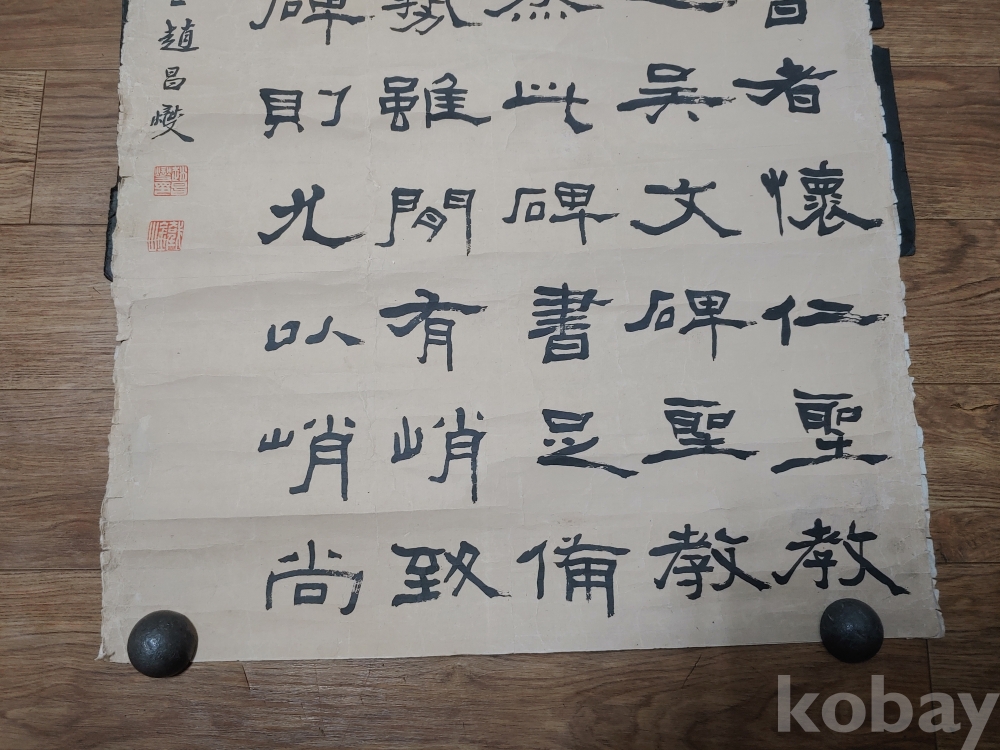 者懷仁聖教
吳文碑聖教
然此碑書足備
勢雖閒有峭致
碑則尤以峭尚
趙昌燮
kobay